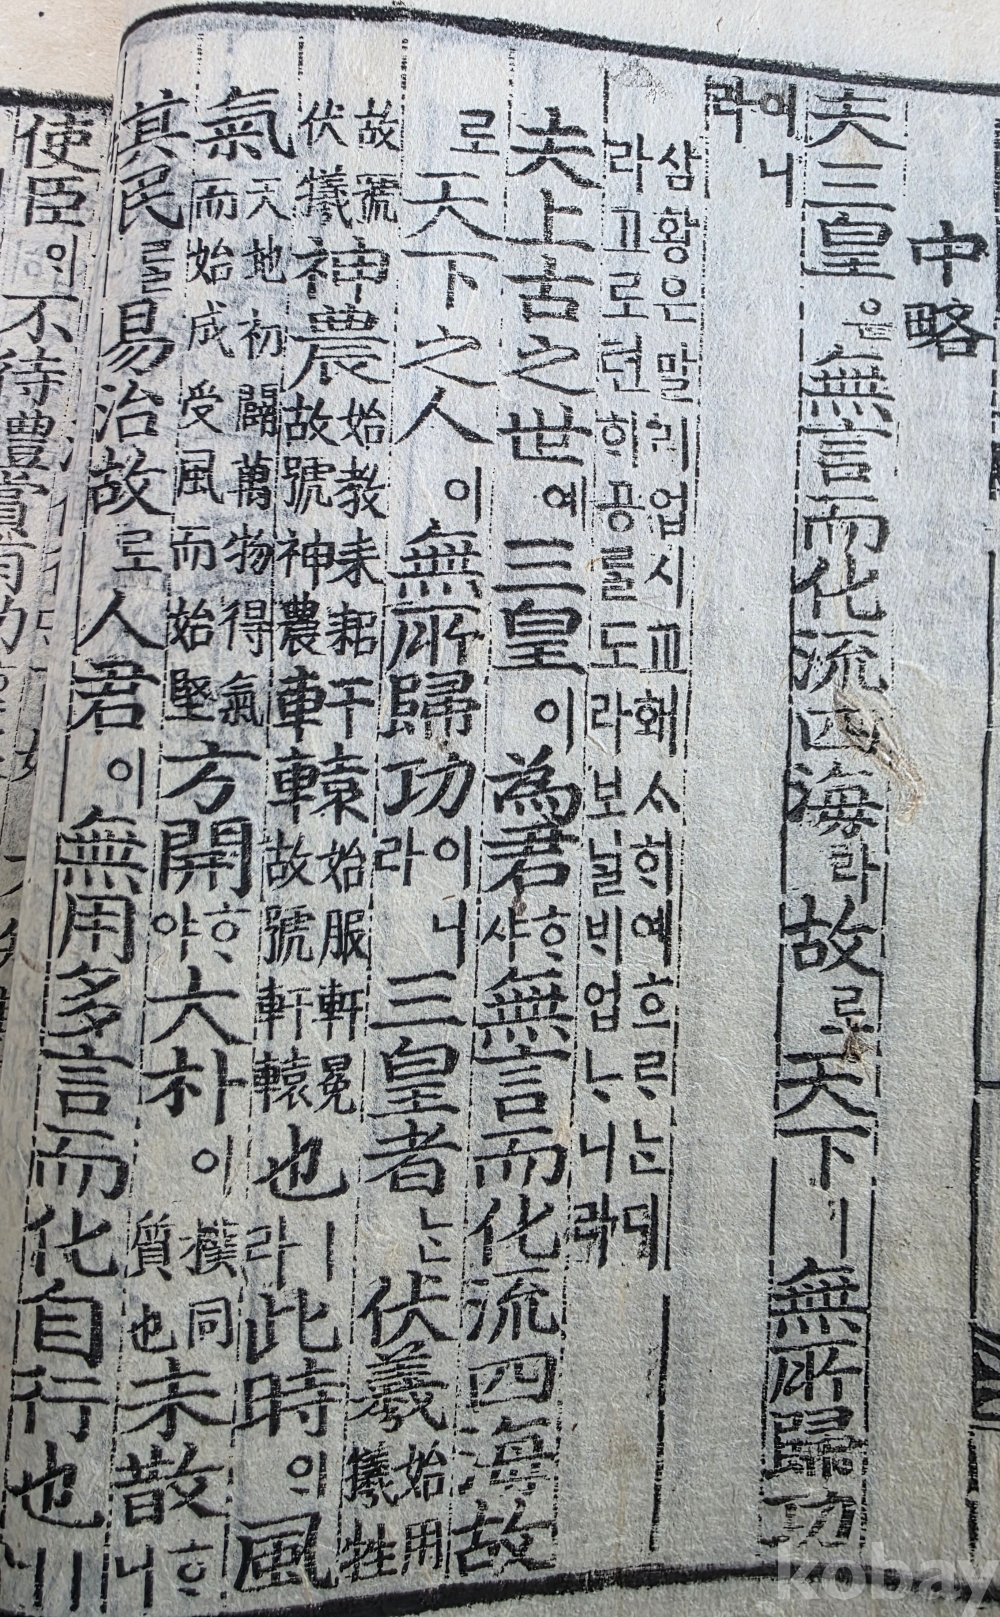 中略
夫三皇은無言而化流四海라故로天下ㅣ無所歸功
이니라
삼황은말이업시교홰ᄉᆞᄒᆡ예흐르ᄂᆞᆫ디
라그로텬하공을도라보닐ᄃᆡ업ᄂᆞ니라
夫上古之世예三皇이為君ᄒᆞ샤無言而化流四海故
로天下之人이無所歸功이니라三皇者ᄂᆞᆫ伏羲始用犧牲
故號伏犧神農始教耒耜故號神農軒轅始服軒冕故號軒轅也ㅣ라此時의風
氣天地初闢萬物得氣而始成受風而始堅方開ᄒᆞ야大朴이樸同質也未散ᄒᆞ니
其民을易治故로人君이無用多言而化自行也ㅣ니
使臣이不待豊賞而
kobay